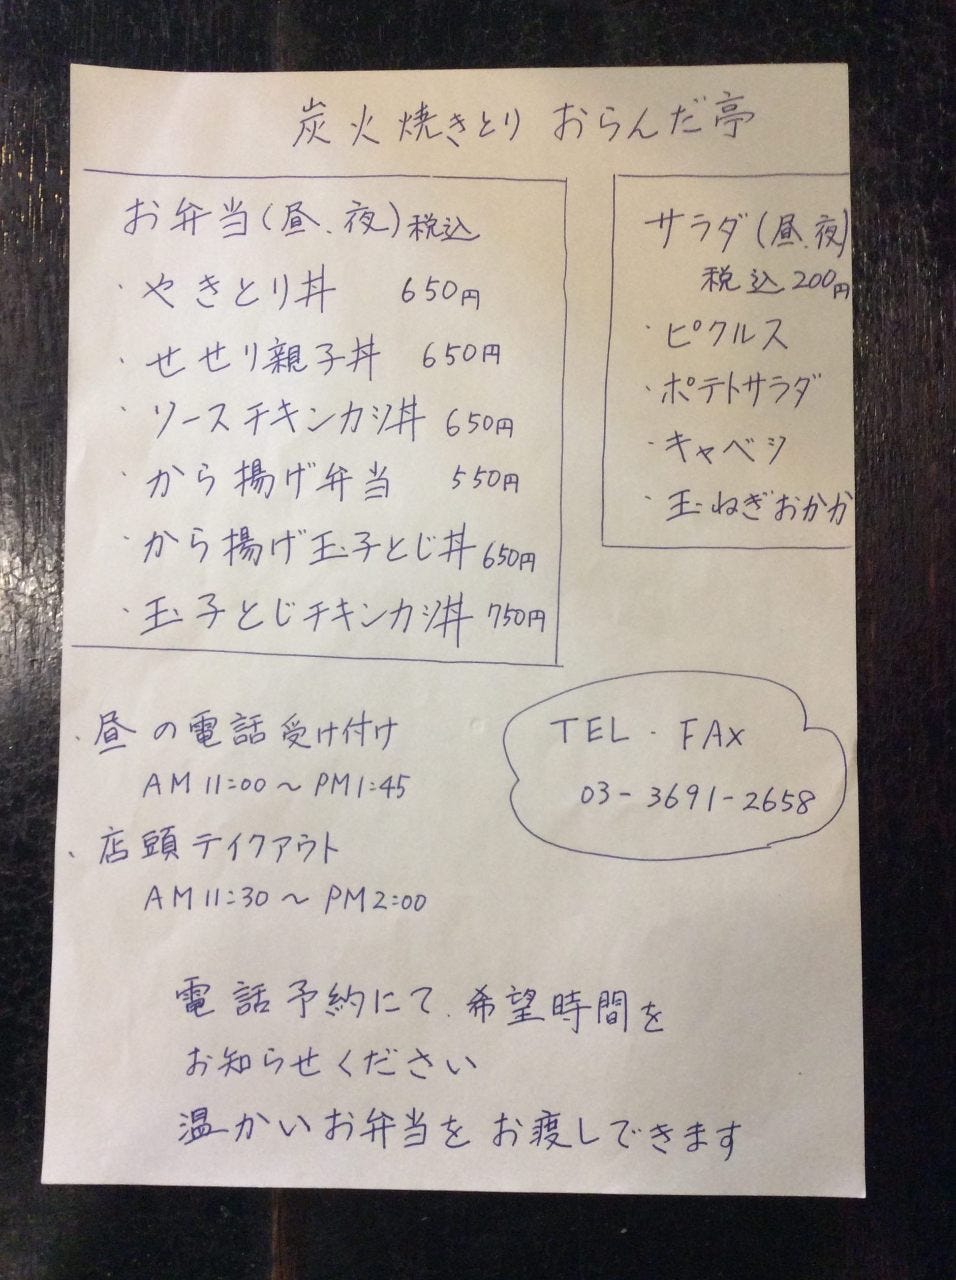 炭火焼きとり おらんだ亭
お弁当(昼、夜)税込
・やきとり丼 650円
・せせり親子丼 650円
・ソースチキンカツ丼 650円
・から揚げ弁当 550円
・から揚げ玉子とじ丼 650円
・玉子とじチキンカツ丼 750円
サラダ(昼、夜)
税込200円
・ピクルス
・ポテトサラダ
・キャベツ
・玉ねぎおかか
、昼の電話受け付け
AM11:00〜PM1:45
、店頭テイクアウト
AM11:30〜PM2:00
TEL・FAX
03-3691-2658
電話予約にて、希望時間を
お知らせください
温かいお弁当をお渡しできます